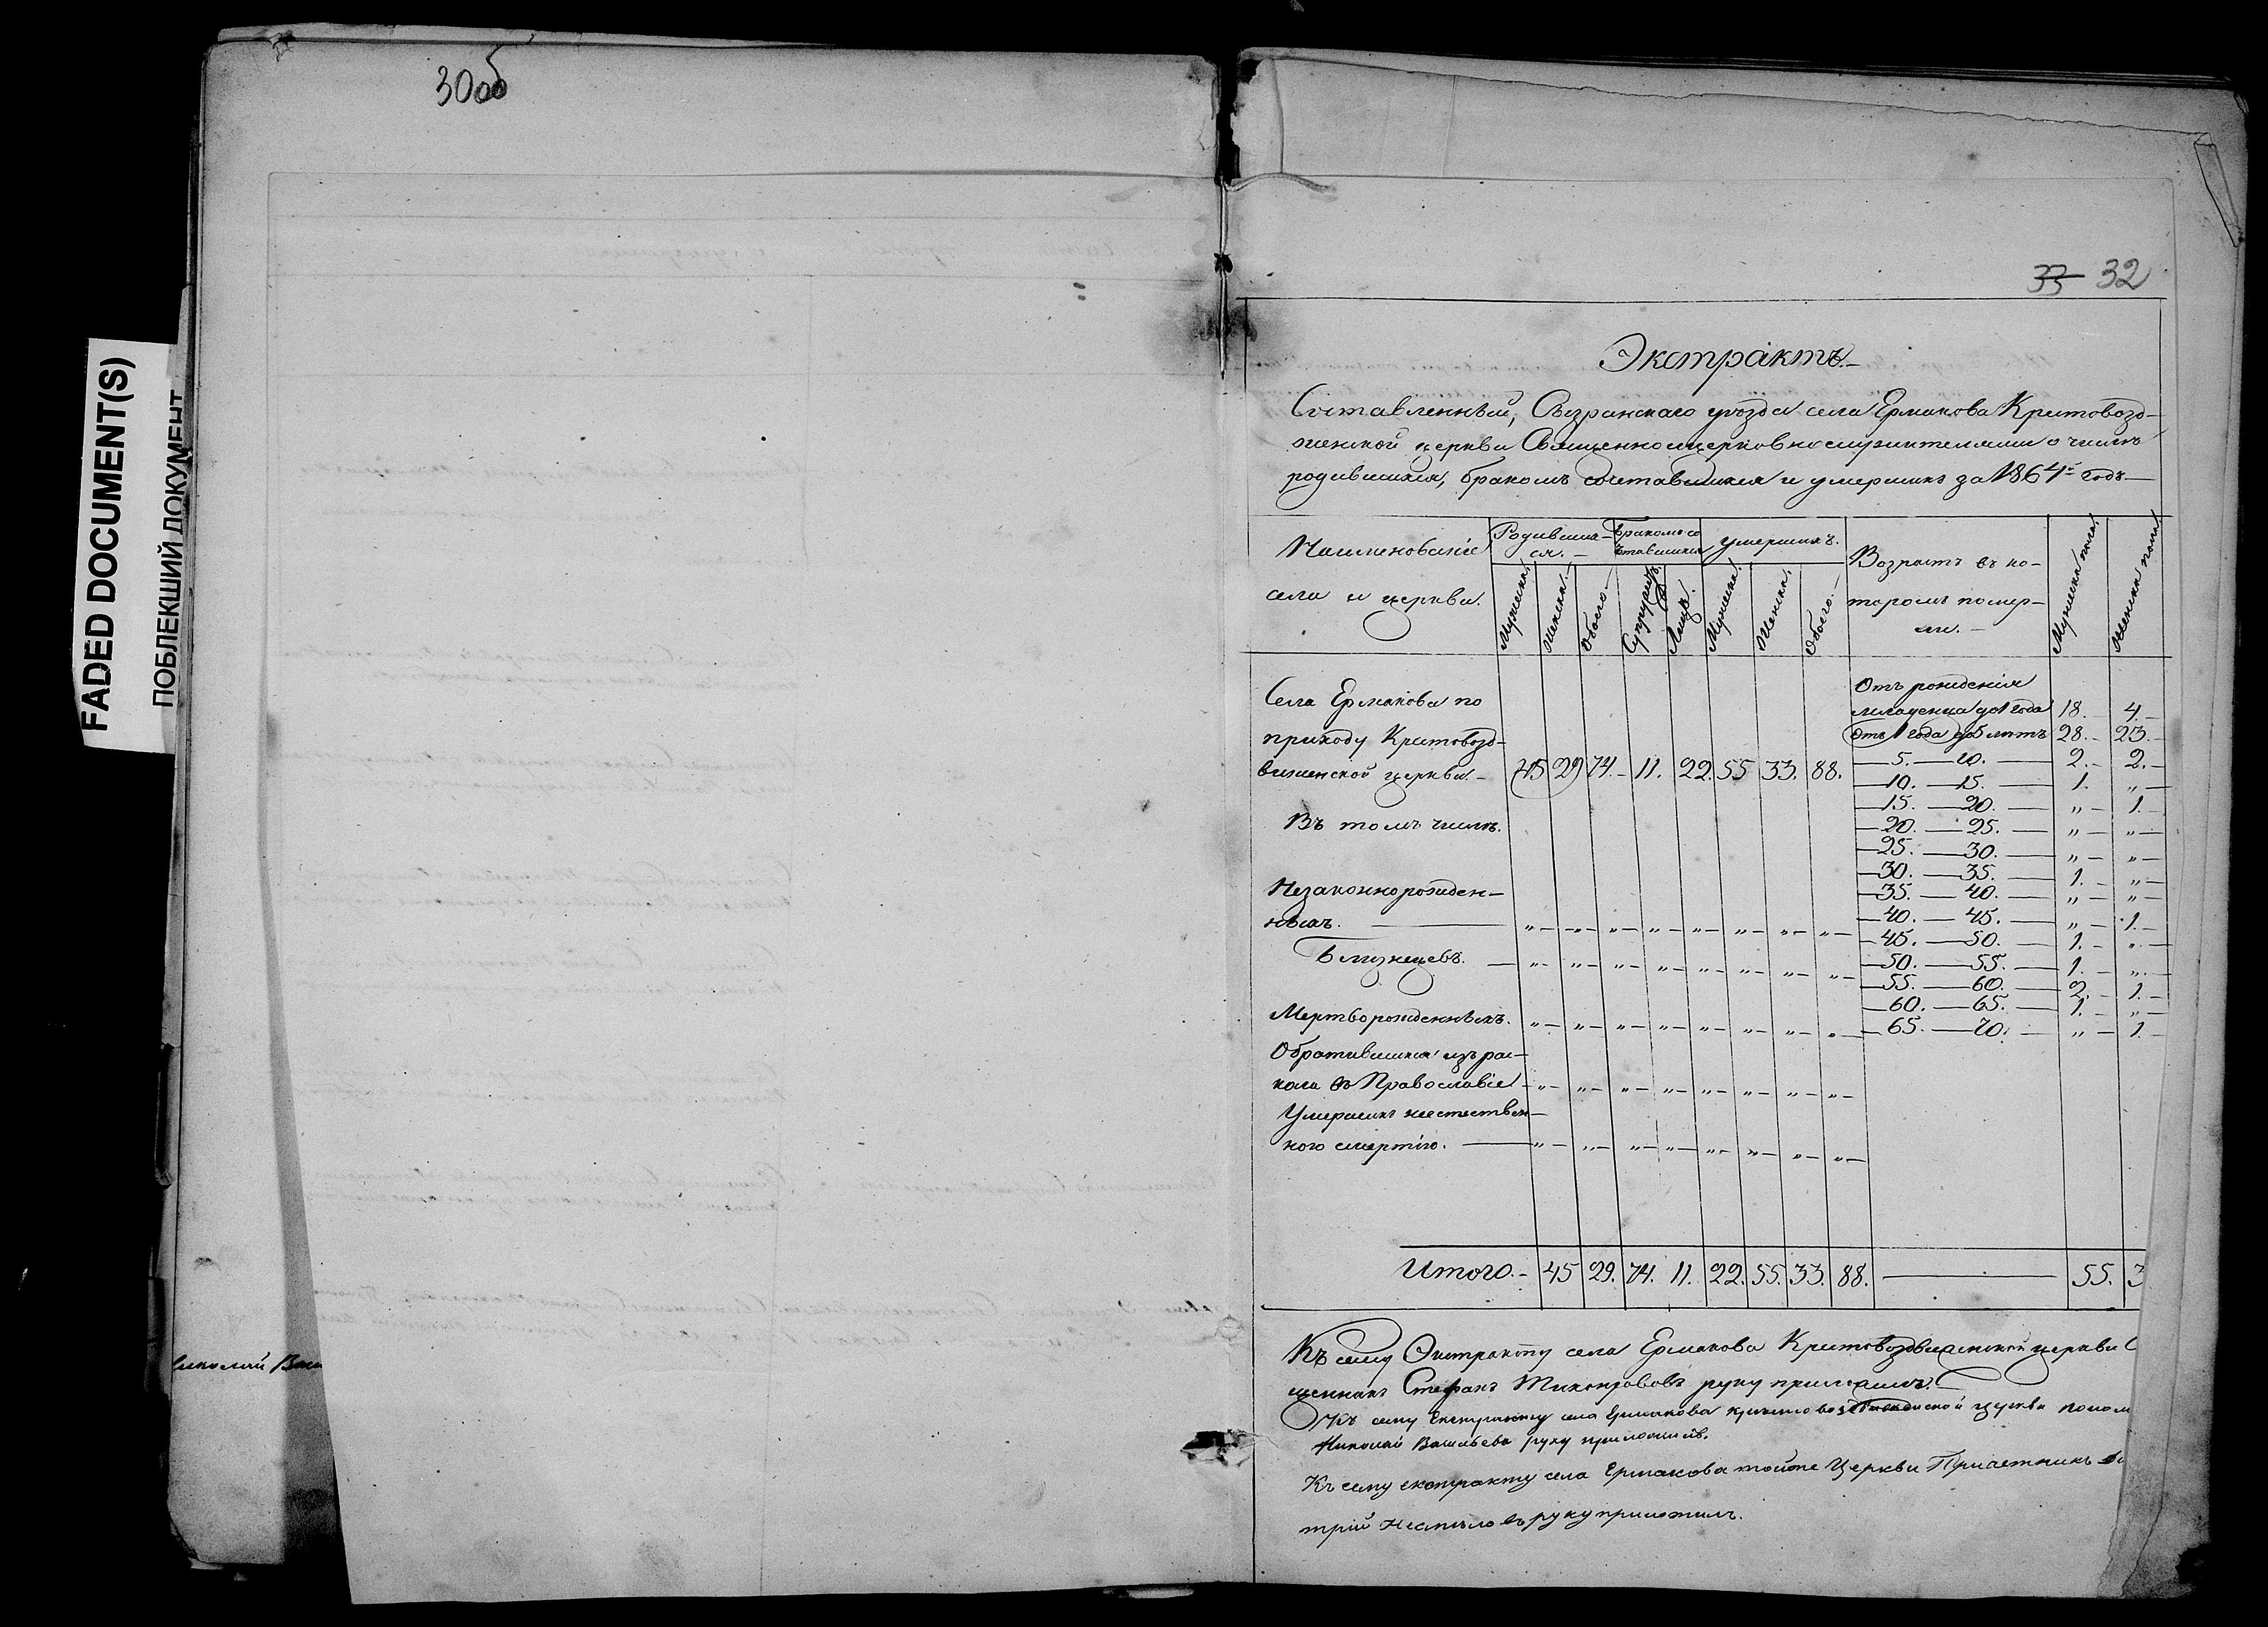 30об
FADED DOCUMENT(S)
ПОБЛЕКШИЙ ДОКУМЕНТ
33 32
Экстрактъ.
Составленный, Сызранскаго уѣзда села Ермакова Крестовозд-
виженской церкви Священноцерковнослужителями о числѣ
родившихся, бракомъ сочетавшихся и умершихъ за 1864й годъ
Наименованіе села и церкви.
Родивша- ся.
Бракомъ со четавшихся
умершихъ.
Возрастъ въ ко- торомъ помер- ли.
Мужеска пола.
Женска пола.
Мужеска. Женска. Обоего. Супружествъ. Лицъ. Мужеска. Женска. Обоего.
Села Ермакова по
приходу Крестовозд-
виженской церкви. 45 29 74. 11. 22. 55 33. 88.
Отъ рожденія
младенца до 1 года 18. 4.
Отъ 1 года до 5 лѣтъ 28. 23.
5. 10. 2. 2.
10. 15. 1. „
15. 20. „ 1.
20. 25. „ „
25. 30. „ „
30. 35. 1. „
35. 40. „ „
40. 45. „ 1.
45. 50. 1. „
50. 55. 1. „
55. 60. 2. 1.
60. 65. 1. „
65. 70. „ 1.
Въ томъ числѣ.
Незаконнорожден-
ныхъ. „ „ „ „ „ „ „ „
Близнецовъ. „ „ „ „ „ „ „ „
Мертворожденныхъ. „ „ „ „ „ „ „ „
Обратившихся изъ рас-
кола въ Православіе „ „ „ „ „ „ „ „
Умершихъ неестествен-
ною смертію. „ „ „ „ „ „ „ „
Итого. 45 29. 74. 11. 22. 55. 33. 88. 55. 3
Николай Васи
Къ сему Экстракту села Ермакова Крестовоздвиженской церкви С
щенникъ Стефанъ Тихонравовъ руку приложилъ.
Къ сему Екстракту села Ермакова Крестовоздвиженской церкви поном
Николай Васильевъ руку приложилъ.
Къ сему екстракту села Ермакова тойже Церкви Причетникъ
трій руку приложилъ.